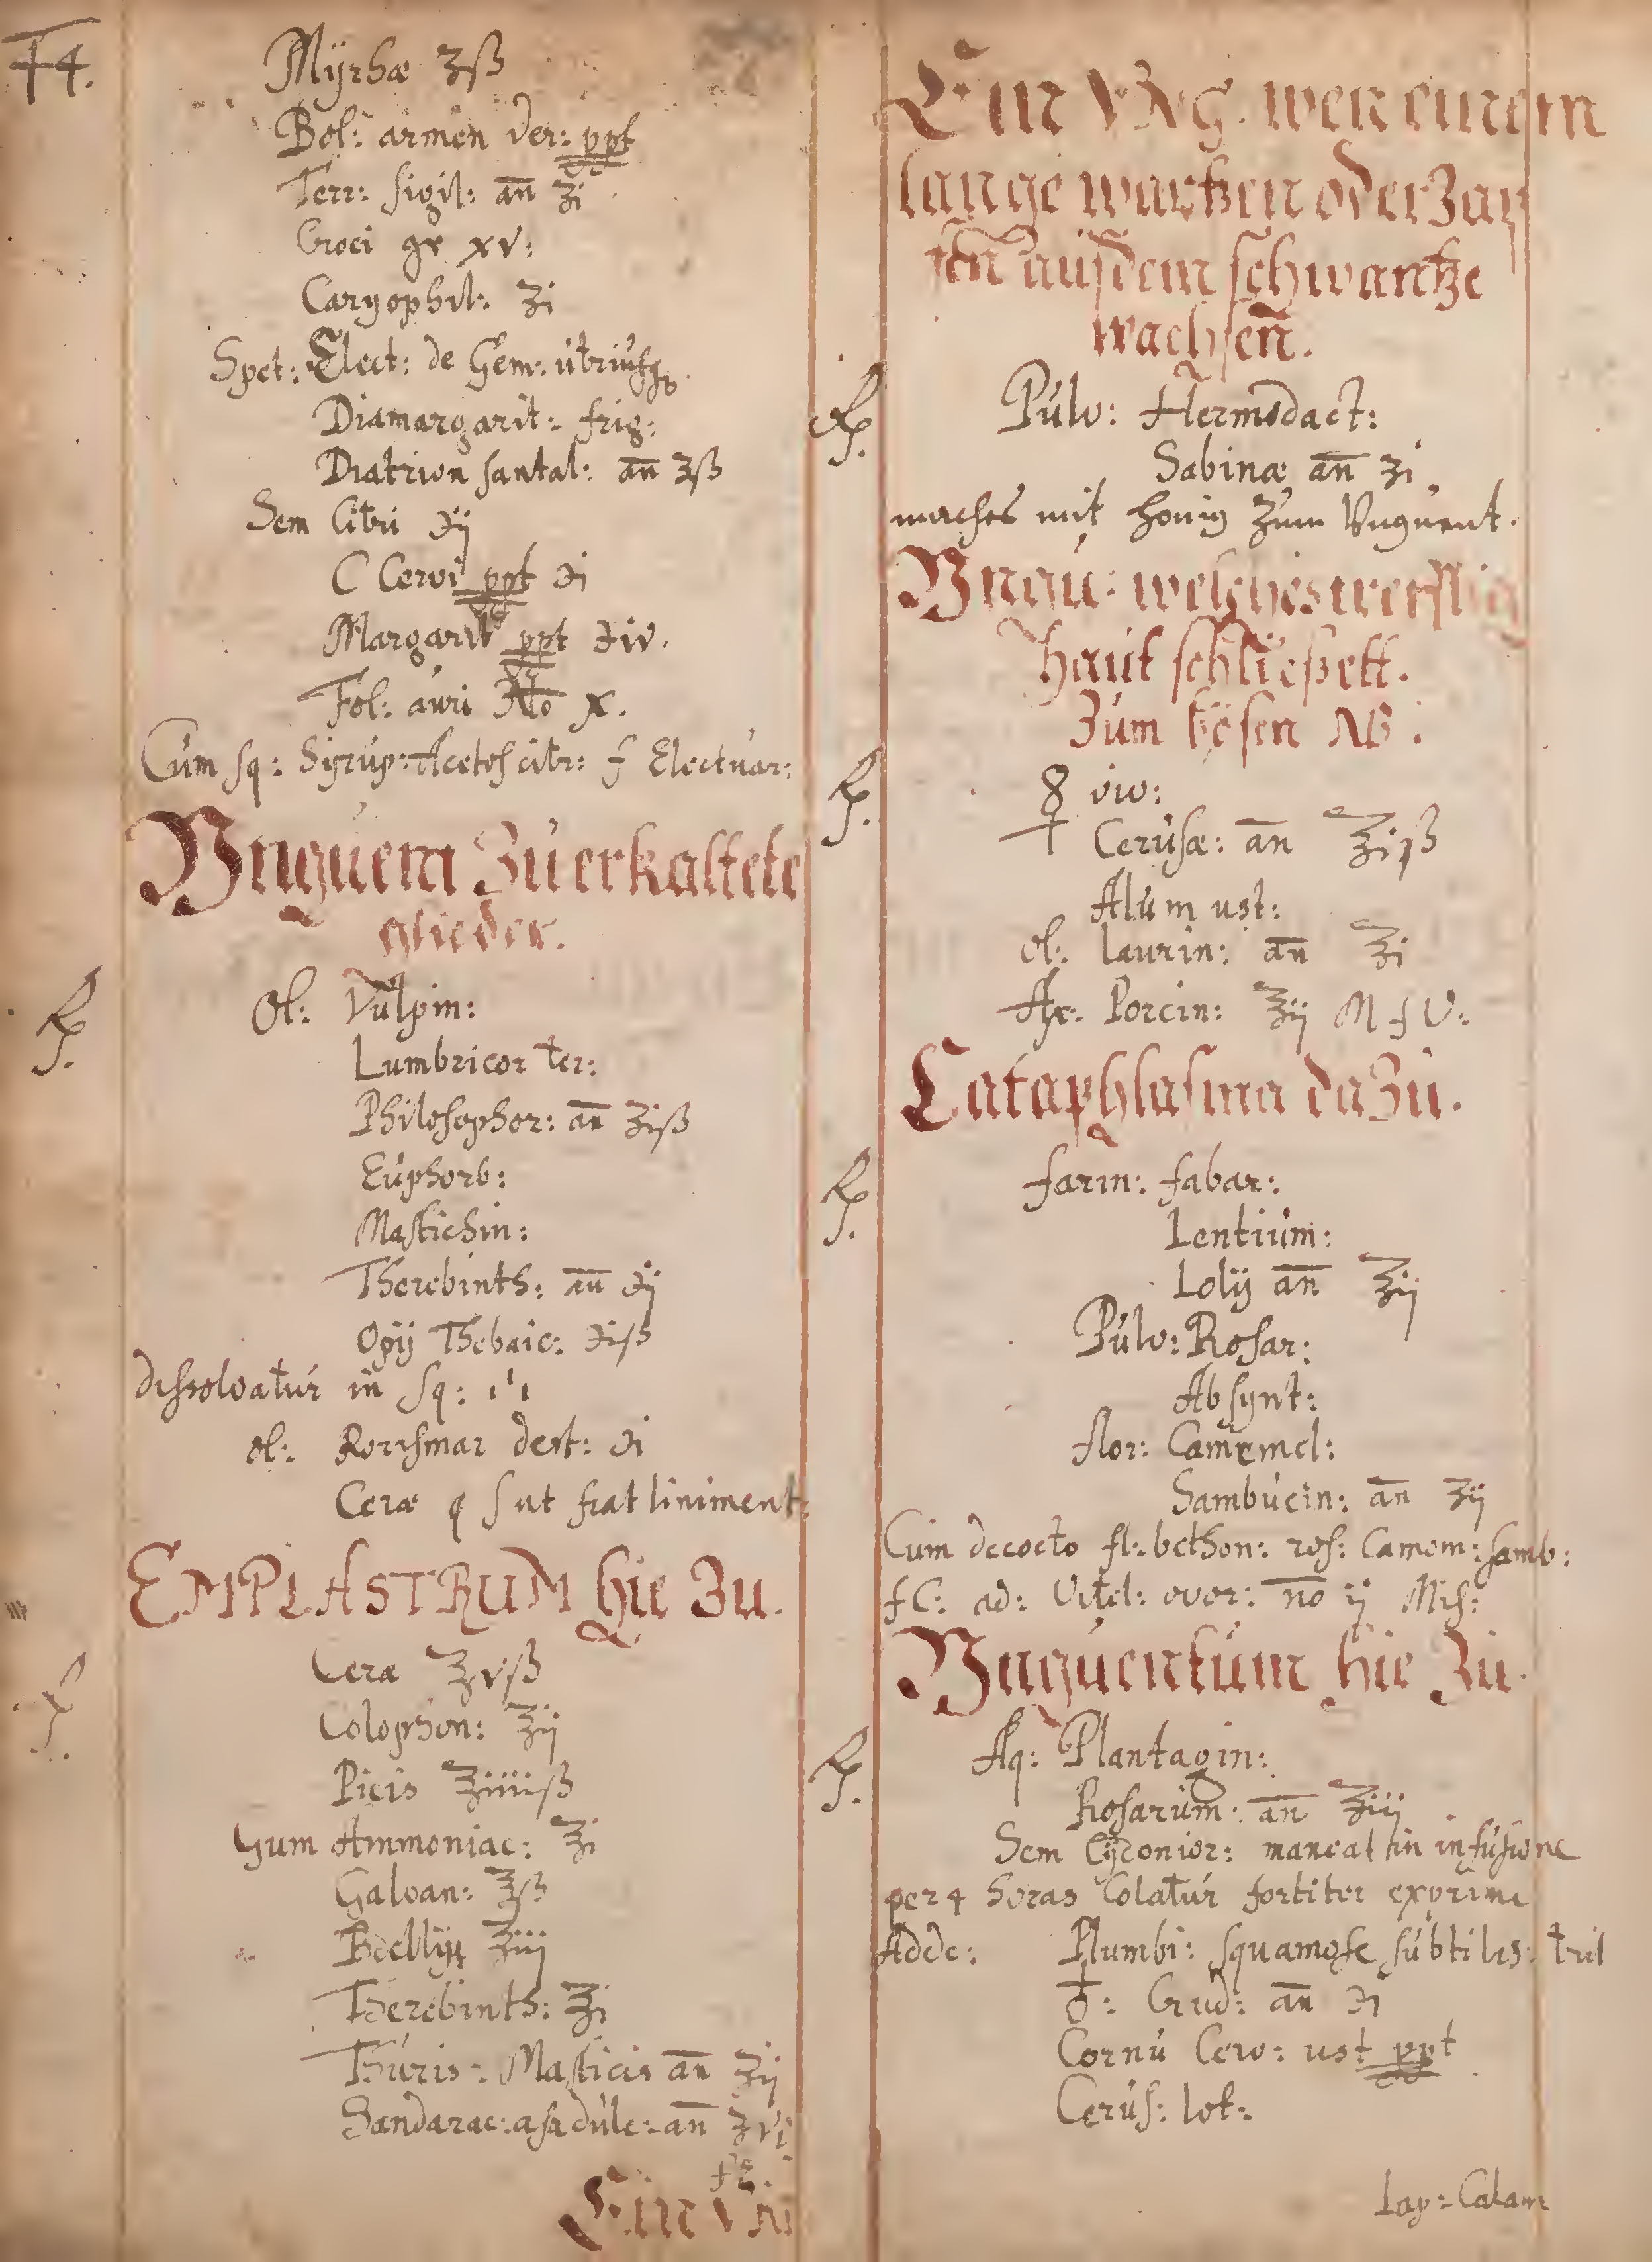 74.
Myrhæ ʒß
Bol: armen ver: ppt
Terr: sigil: an̄ ʒi
Croci gr xv:
Caryophil: ʒi
Spet: Elect: de Gem: utriusqȝ
Diamargarit: frig:
Diatrion santal: an̄ ʒß
Sem Citri ℈ij
C Cervi ppt ℈i
Margarit ppt ℈iv.
Fol: auri No x.
Cum sq: Syrup: Acetos citr: f Electuar:
Vnguent Zu erkaltete
glieder.
℞. Ol: Vulpin:
Lumbricor ter:
Philosophor: an̄ ʒiß
Euphorb:
Mastichin:
Therebinth: an̄ ℈ij
Opij Thebaic: ℈iß
dissolvatur in sq:
ol: Rorismar dest: ℈i
Ceræ q s ut fiat liniment:
EMPLASTRUM hie Zu.
℞. Ceræ ℥vß
Colophon: ℥ij
Picis ℥iiiiß
Gum Ammoniac: ℥i
Galban: ℥ß
Bdellij ℥iij
Therebinth: ℥i
Thuris: Masticis an̄ ʒij
Sandarac: asa dulc: an̄ ʒvi
fE.
Ein Vn
Ein VNg. wen einem
lange wartzen oder Zap
fen aus dem schwantze
wachsen̄.
℞. Pulv: Hermodact:
Sabinæ an̄ ʒi
maches mit honig Zum Vnguent.
Vngu: welches trefflig
haut schließett.
Zum bösen NB:
℞. viv:
Cerusæ: an̄ ℥iß
Alum ust:
Ol: laurin: an̄ ℥i
Ax: Porcin: ℥ij M f U:
Cataphlasma da Zu.
℞. farin: fabar:
Lentium:
Lolij an̄ ℥ij
Pulv: Rosar:
Absynt:
flor: Camemel:
Sambucin: an̄ ʒij
Cum decocto fl: bethon: ros: Camom: samb:
f C: ad: Vitel: ovor: no ij Mis:
Vnguentum hie Zu.
℞. Aq: Plantagin:
Rosarum: an̄ ℥iij
Sem Cydonior: maneat in infusione
per 4 horas Colatur fortiter exprime
Adde: Plumbi: squamose subtilis: trit
♁: Crud: an̄ ℈i
Cornu Cerv: ust ppt
Cerus: lot:
Lap: Calam